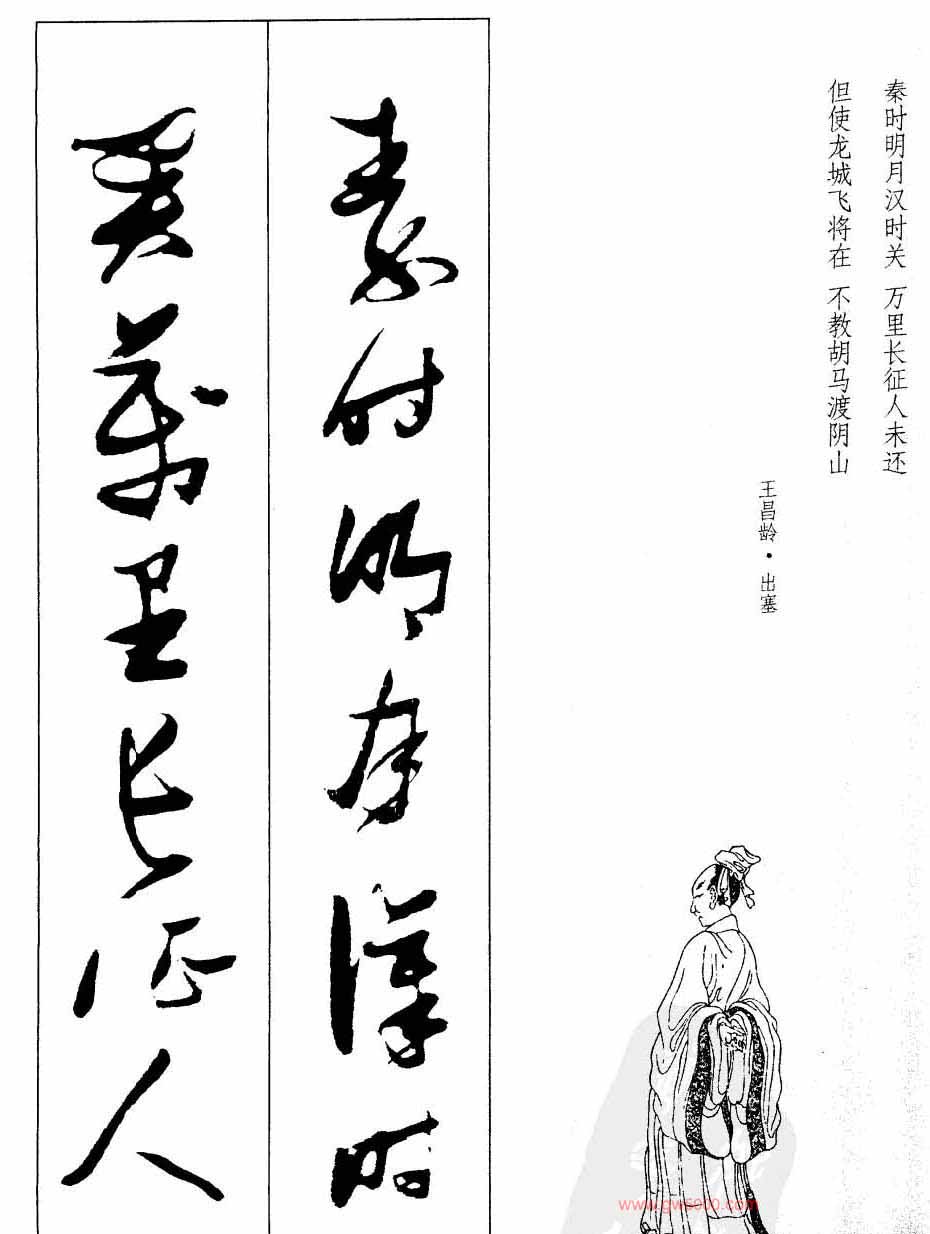 秦时明月汉时关 万里长征人未还
但使龙城飞将在 不教胡马渡阴山
王昌龄·出塞
秦时明月汉时
关万里长征人
www.gw5000.com